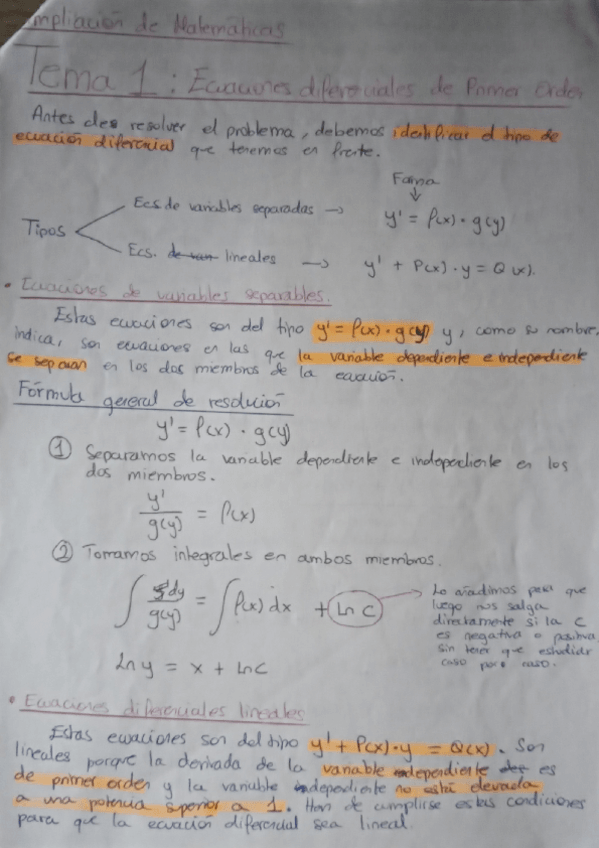 Ampliación de Matemáticas
Tema 1: Ecuaciones diferenciales de Primer Orden
Antes des resolver el problema, debemos identificar el tipo de
ecuación diferencial que tenemos en frente.
Forma
↓
Ecs. de variables separadas → y' = f(x) · g(y)
Tipos
Ecs. lineales → y' + P(x) · y = Q(x).
• Ecuaciones de variables separables.
Estas ecuaciones son del tipo y' = f(x) · g(y) y, como su nombre
indica, son ecuaciones en las que la variable dependiente e independiente
se separan en los dos miembros de la ecuación.
Fórmula general de resolución
y' = f(x) · g(y)
① Separamos la variable dependiente e independiente en los
dos miembros.
y'/g(y) = f(x)
② Tomamos integrales en ambos miembros.
∫ dy/g(y) = ∫ f(x) dx + Ln C → Lo añadimos para que
luego nos salga
directamente si la C
es negativa o positiva
sin tener que estudiar
caso por caso.
Ln y = x + Ln C
• Ecuaciones diferenciales lineales
Estas ecuaciones son del tipo y' + P(x) · y = Q(x). Son
lineales porque la derivada de la variable independiente es
de primer orden y la variable independiente no está elevada
a una potencia superior a 1. Han de cumplirse estas condiciones
para que la ecuación diferencial sea lineal.